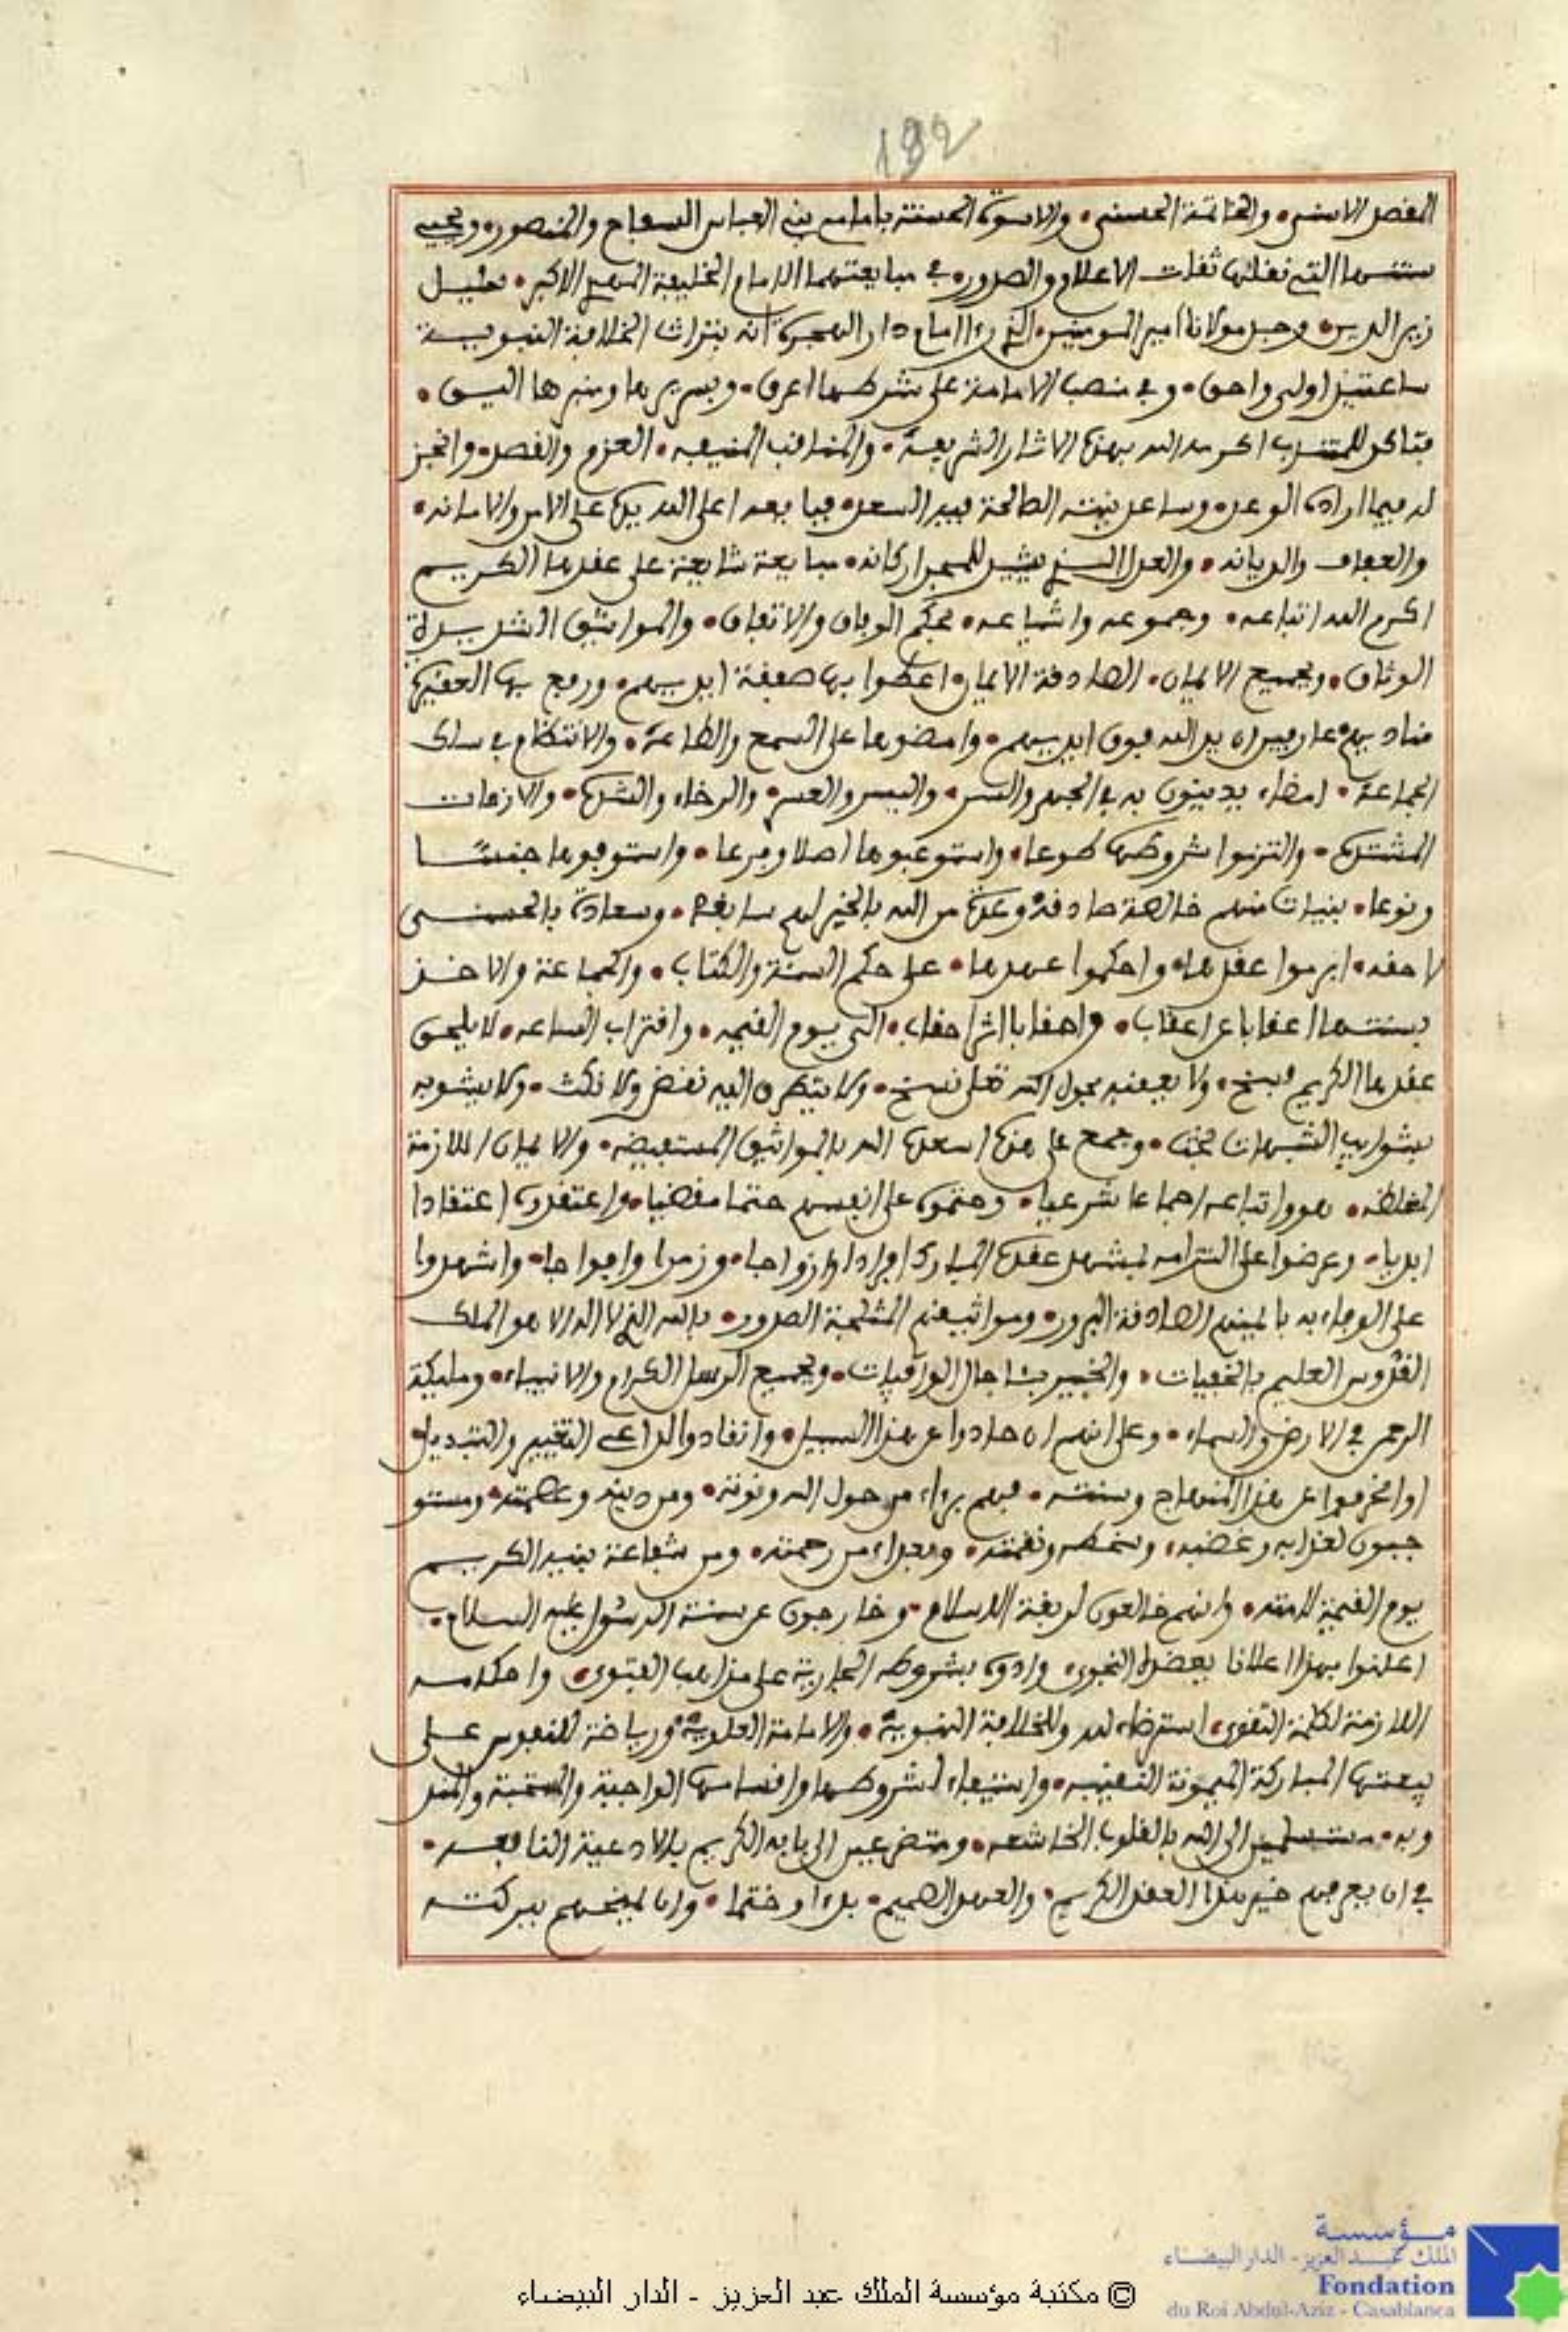 192
المقصد الاسنى والخاتمة الحسنى والاسوة الحسنة بامامي بني العباس السفاح والمنصور ويحيي
سنتهما التي نقلتها ثقات الاعلام والصدور في مبايعتهما الامام الخليفة المهدي الاكبر سليل
زين الدين وجد مولانا امير المومنين الذي رءا امام دار الهجرة انه بتراث الخلافة النبوية
ساعتئذ اولى واحق وفي منصب الامامة على شرطها اعرق وبسريرها ومنبرها اليق
فتاكد للمنتدب اكرمه الله بهذه الاثار الشريفة والمناقب المنيفه العزم والقصد وانجز
له فيما اراده الوعد وساعد نيته الصالحة فيه السعد فبايعه اعلى الله يده على الامن والامانه
والعفاف والديانه والعدل الذي يشيد للمجد اركانه مبايعة شايعه على عقدها الكريم
اكرم الله اتباعه وجموعه واشياعه بحكم الوفاق والاتفاق والمواثيق الشديدة
الوثاق وبجميع الايمان الصادقة الايمان اعطوا بها صفقة ايديهم ورفع بها العقيرة
مناديهم عارفين ان يد الله فوق ايديهم وامضوها على السمع والطاعة والانتظام في سلك
الجماعة امضاء يدينون به في الجهر والسر واليسر والعسر والرخاء والشدة والازمات
المشتدة والتزموا شروطها طوعا واستوعبوها اصلا وفرعا واستوفوها جنسا
ونوعا بنيات منهم خالصة صادقة وعدة من الله بالخير لهم سابقة وسعادة بالحسنى
لاحقه ابرموا عقدها واحكموا عهدها على حكم السنة والكتاب والجماعة والاخذ
بسنتها اعقابا عن اعقاب واحقابا اثر احقاب الى يوم القيمه واقتراب الساعه لا يلحق
عقدها الكريم فسخ ولا يعقبه بحول الله تعلى نسخ ولا يتطرق اليه نقض ولا نكث ولا يشوبه
بشوايب الشبهات بحث وجمع على هذه اسعده الله بالمواثيق المستفيضه والايمان اللازمة
المغلظه هو واتباعه اجماعا شرعيا وحتموه على انفسهم حتما مقضيا واعتقدوه اعتقادا
ابديا وعرضوا على التزامه لمشهد عقده المبارك افرادا وازواجا وزمرا وافواجا واشهدوا
على الوفاء به بايمانهم الصادقة البرور ومواثيقهم المثلجة الصدور بالله الذي لا اله الا هو الملك
القدوس العليم بالخفيات والخبير بئاجال الوافيات وبجميع الرسل الكرام والانبياء وملئكة
الرحمن في الارض والسماء وعلى انهم ان حادوا عن هذا السبيل وانقادوا لداعي التغيير والتبديل
او انحرفوا عن هذا المنهاج وسنته فهم برءاء من حول الله وقوته ومن دينه وعصمته ومستو
جبون لعذابه وغضبه وسخطه ونقمته وبعداء من رحمته ومن شفاعة نبيه الكريم
يوم القيمة لامته وانهم خالعون لربقة الاسلام وخارجون عن سنة الرسول عليه السلام
اعلنوا بهذا اعلانا يعضده النجوى وادوه بشروطه الجارية على مذاهب الفتوى واحكامه
اللازمة لكلمة التقوى استرضاء لله وللخلافة النبوية والامامة العلوية ورياضة للنفوس على
بيعتها المباركة الميمونة النقيبه واستيفاء لشروطها واقسامها الواجبة والمستحبة والمند
وبه مستسلمين الى الله بالقلوب الخاشعه ومتضرعين الى بابه الكريم بالادعية النافعه
في ان يعرفهم خير هذا العقد الكريم والعهد الصميم بدءا وختما وان يمنحهم ببركته
مؤسسة
الملك عبد العزيز - الدار البيضاء
Fondation
du Roi Abdul-Aziz - Casablanca
© مكتبة مؤسسة الملك عبد العزيز - الدار البيضاء